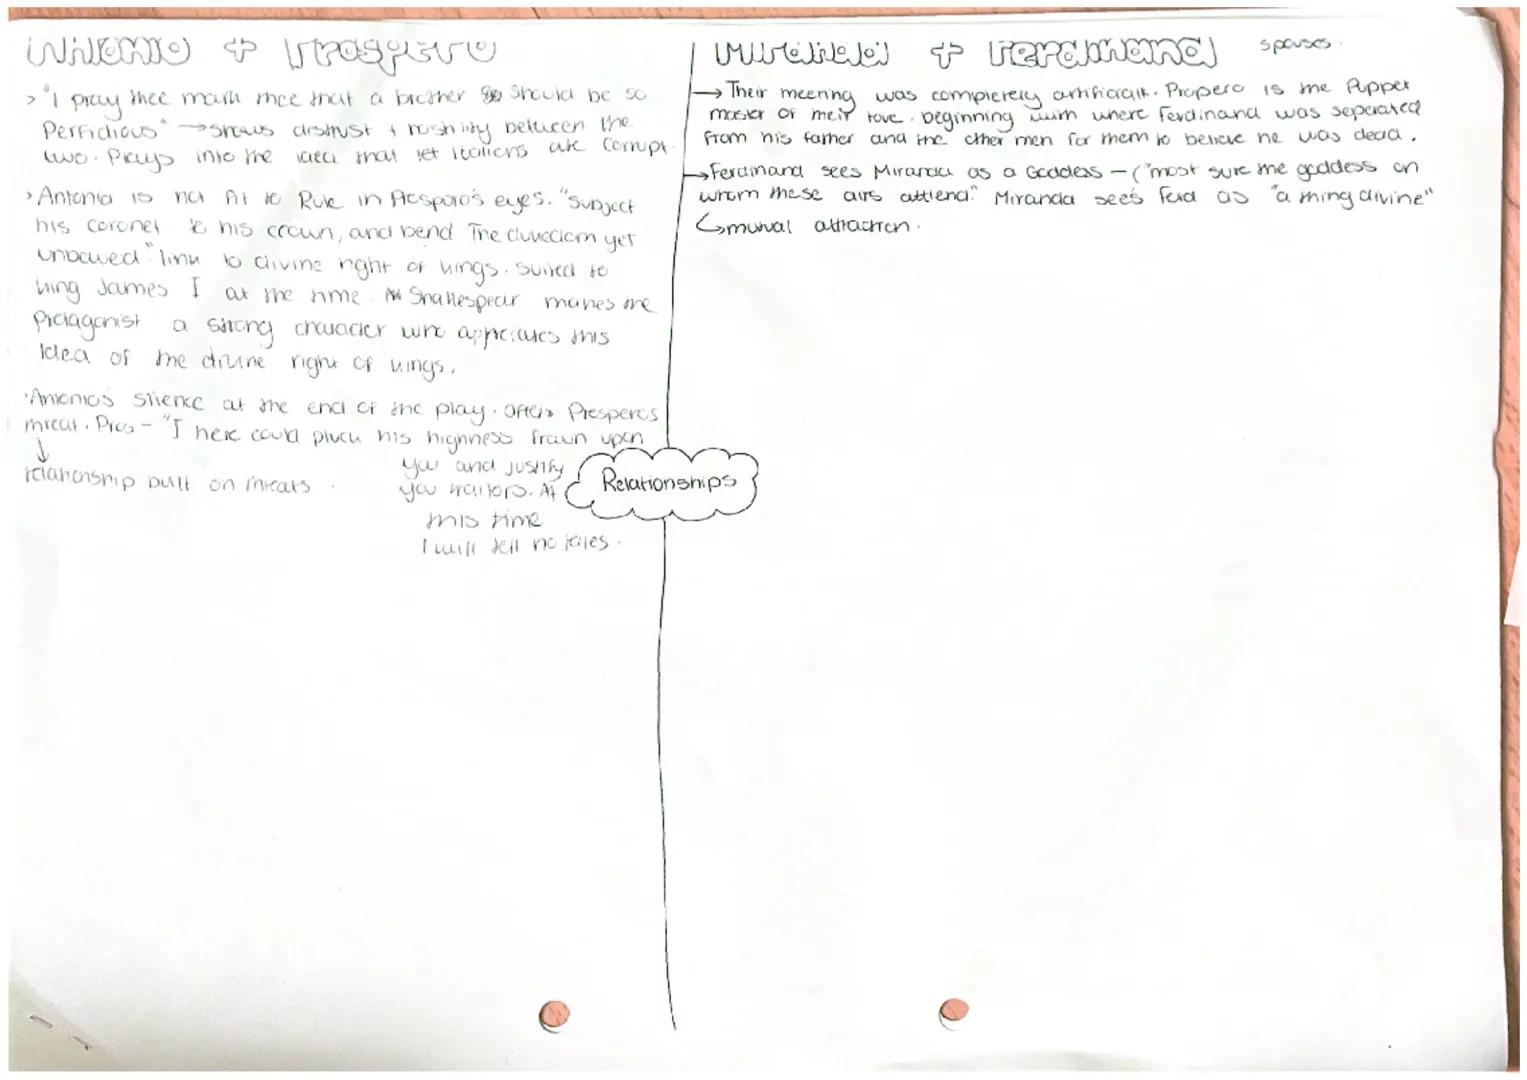 Antonio + Prospero
> "I pray thee mark thee that a brother so should be so
Perfidious" → shows distrust + hostility between the
two. Plays into the idea that let Italians are corrupt.
> Antonio is not fit to Rule in Prospero's eyes. "Subject
his coronet to his crown, and bend The dukedom yet
unbowed" link to divine right of kings. Suited to
King James I at the time. Shakespear makes the
Protagonist a strong character who appreciates this
Idea of the divine right of kings.
· Antonio's silence at the end of the play. After Prosperos
threat. Pros - "I here could pluck his highness frown upon
you and justify
you traitors. At
this time
I will tell no tales.
↓
relationship built on threats.
Relationships
Miranda + Ferdinand spouses.
→ Their meeting was completely artificial. Propero is the Puppet
master of their love. beginning with where Ferdinand was seperated
from his father and the other men for them to believe he was dead.
→ Ferdinand sees Miranda as a Goddess - ("most sure the goddess on
whom these airs attend." Miranda sees Ferd as "a thing divine"
↳ mutual attraction.